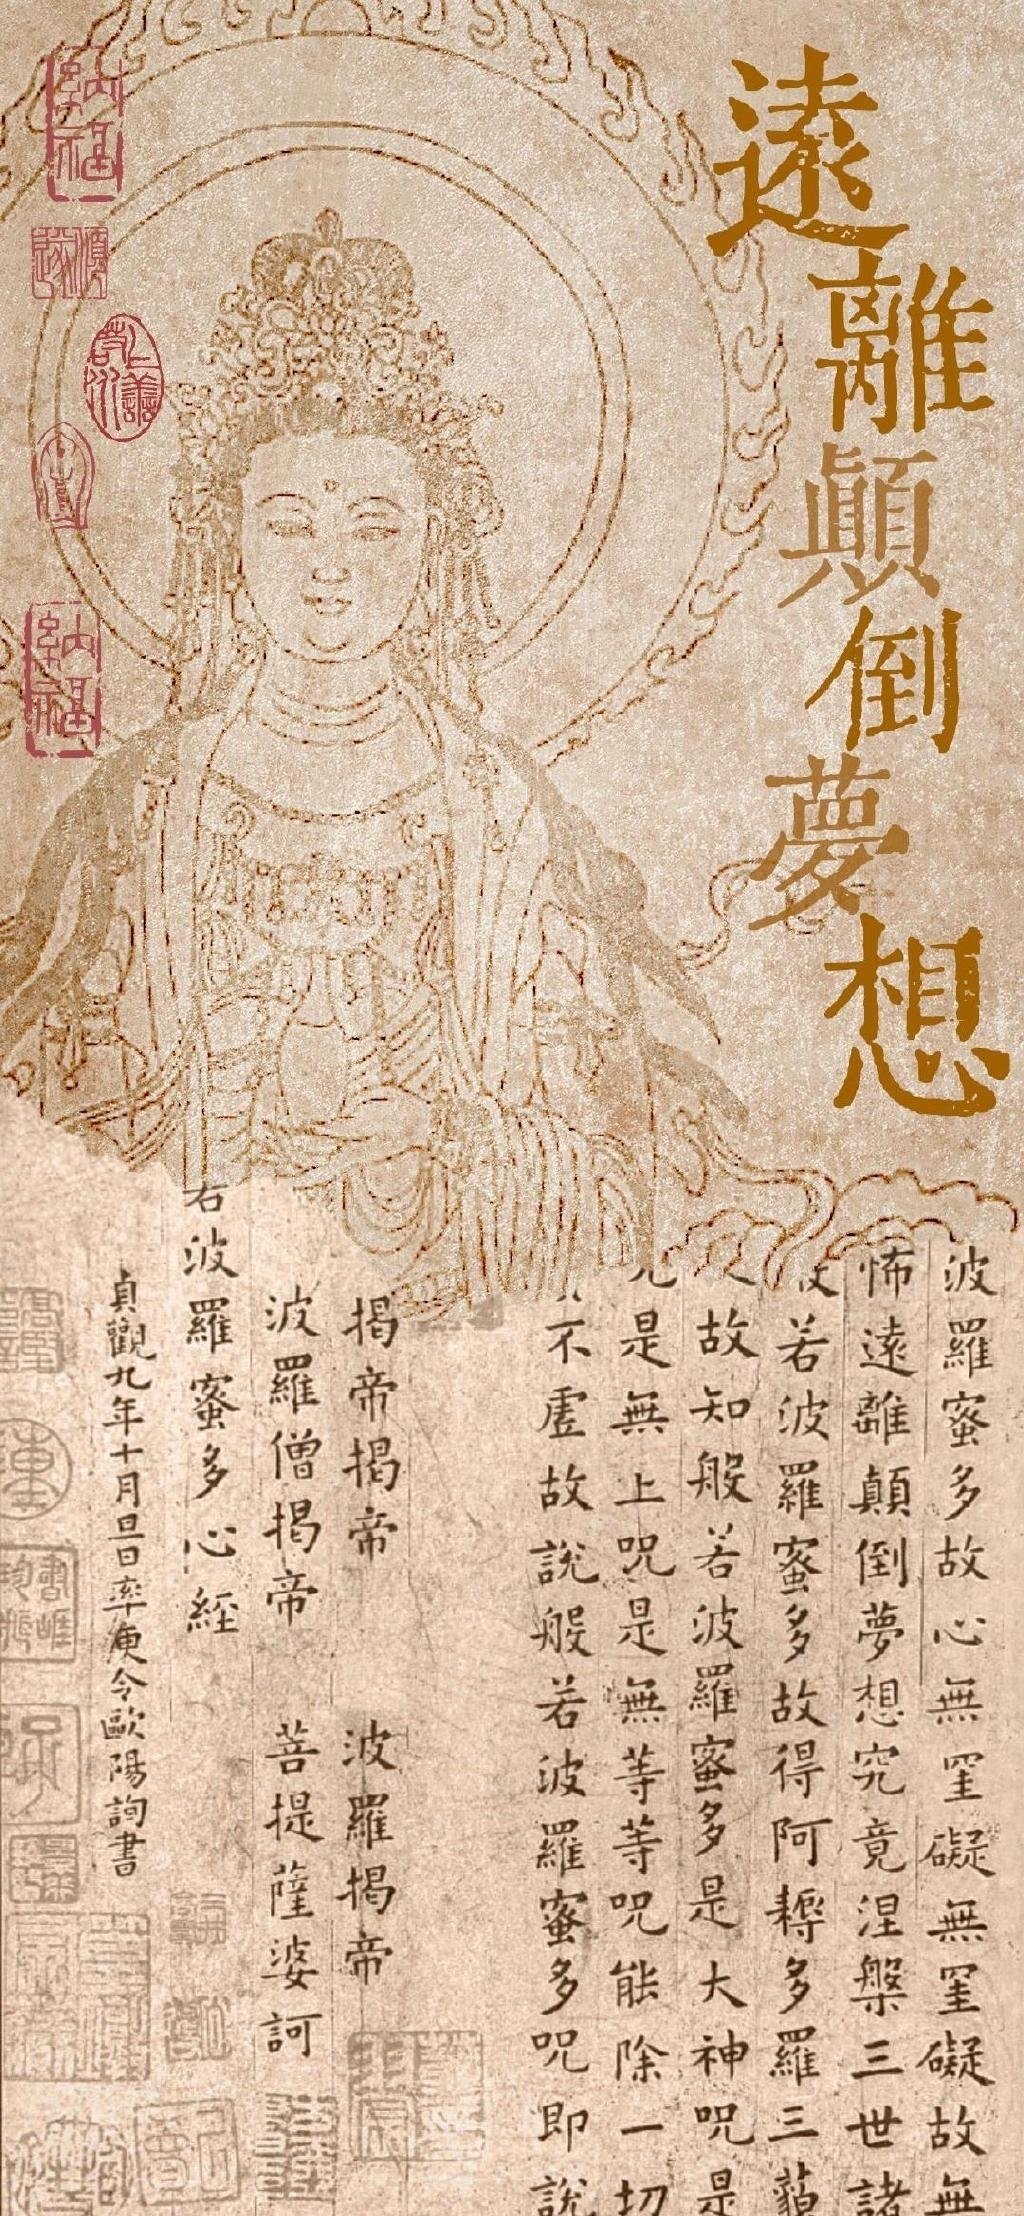 遠離顛倒夢想
波羅蜜多故心無罣礙無罣礙故無
怖遠離顛倒夢想究竟涅槃三世諸
若波羅蜜多故得阿耨多羅三藐
故知般若波羅蜜多是大神咒是
是無上咒是無等等咒能除一切
不虛故說般若波羅蜜多咒即說
揭帝揭帝 波羅揭帝
波羅僧揭帝 菩提薩婆訶
波羅蜜多心經
貞觀九年十月旦日率庚令歐陽詢書
納福
順遂
上善若水
納福